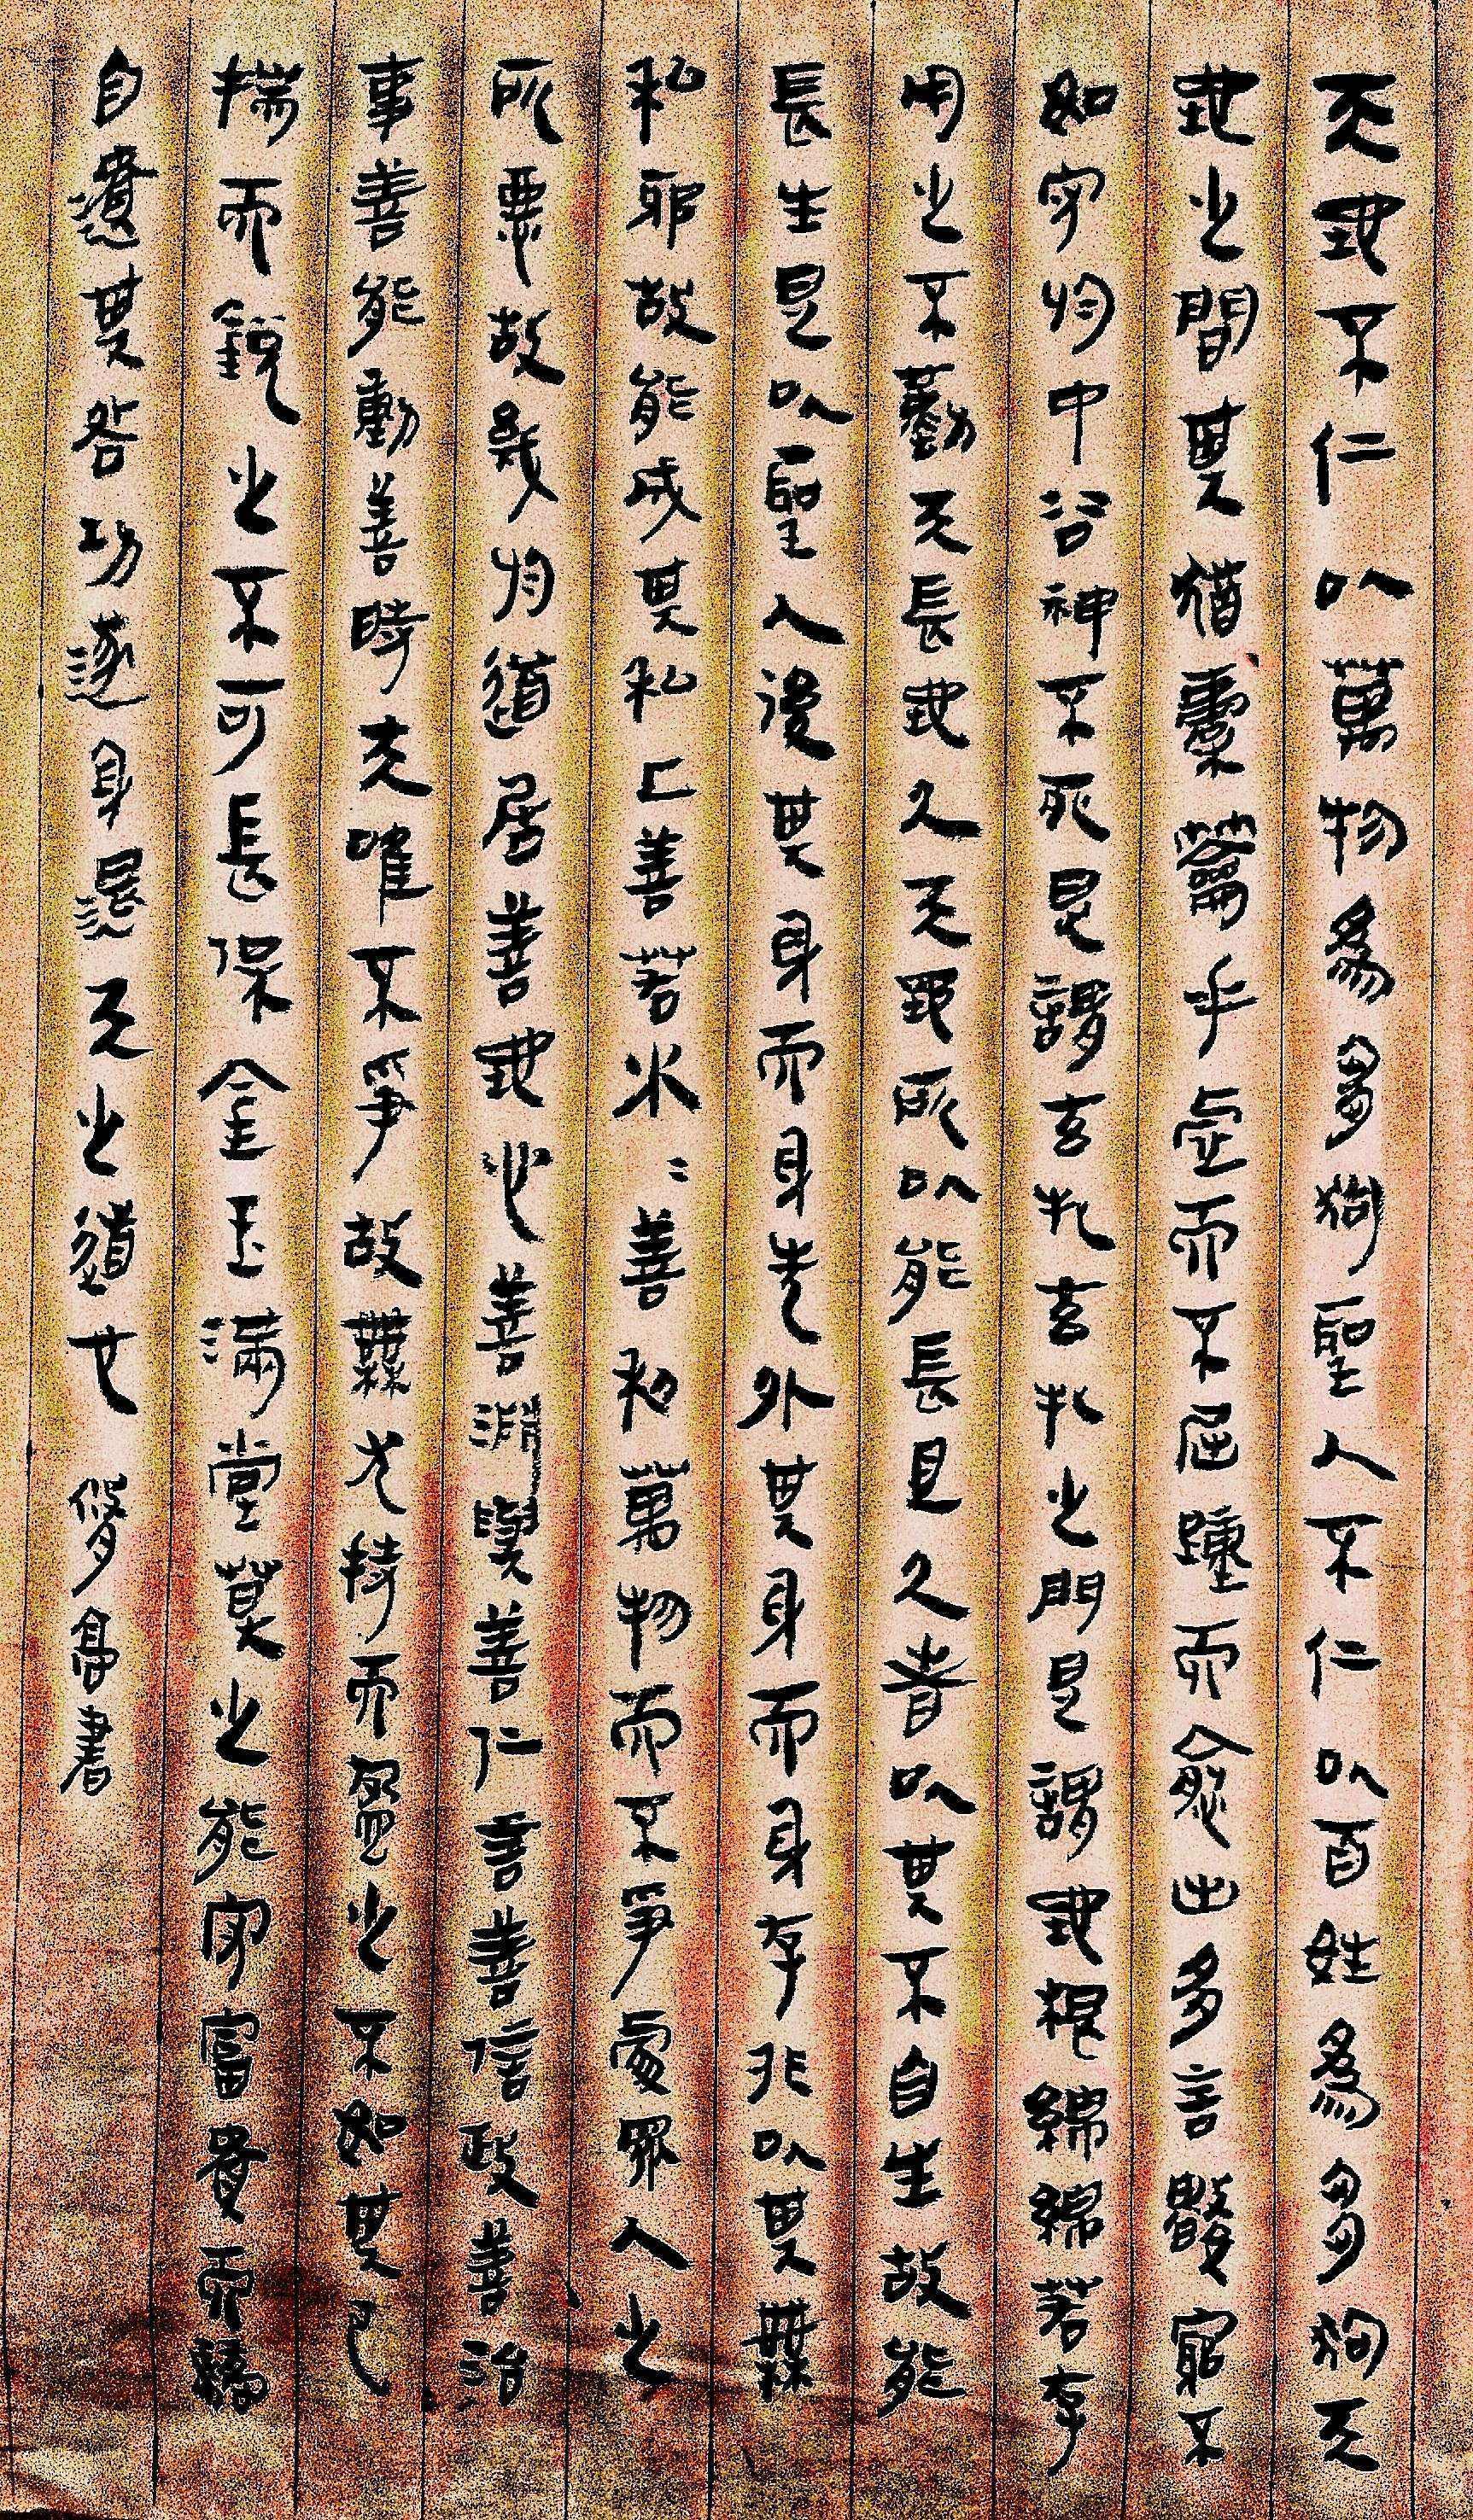 天地不仁以萬物為芻狗聖人不仁以百姓為芻狗天
地之間其猶橐籥乎虛而不屈踵而愈出多言數窮不
如守於中谷神不死是謂玄牝玄牝之門是謂地根綿綿若存
用之不勤天長地久天地所以能長且久者以其不自生故能
長生是以聖人後其身而身先外其身而身存非以其無
私邪故能成其私上善若水〻善利萬物而不爭處眾人之
所惡故幾於道居善地心善淵與善仁言善信政善治
事善能動善時夫唯不爭故無尤持而盈之不如其已
揣而銳之不可長保金玉滿堂莫之能守富貴而驕
自遺其咎功遂身退天之道也 書